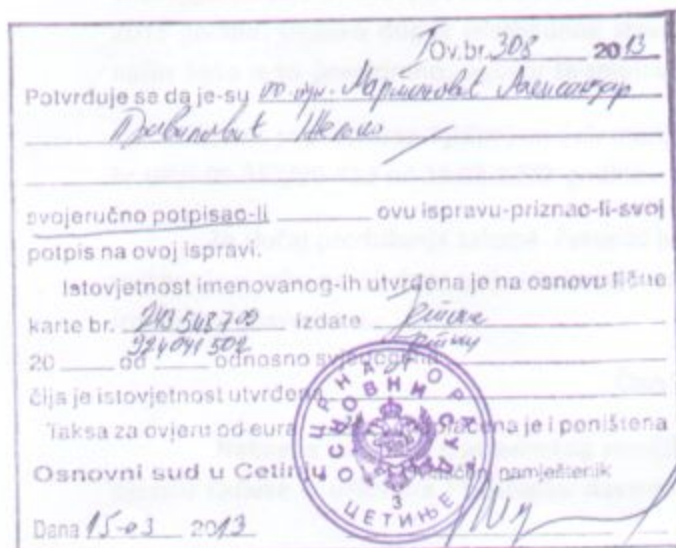 I Ov.br. 308 2013
Potvrđuje se da je-su Мартиновић Александар
svojeručno potpisao-li ovu ispravu-priznao-li-svoj
potpis na ovoj ispravi.
Istovjetnost imenovanog-ih utvrđena je na osnovu lične
karte br. 243548700 izdate Цетиње
924041502
20 od odnosno svjedo
čija je istovjetnost utvrđena
Taksa za ovjeru od eura plaćena je i poništena
Osnovni sud u Cetinju Ovlašćeni namještenik
Dana 15-03 2013
ЦРНА ГОРА
ОСНОВНИ СУД
3
ЦЕТИЊЕ